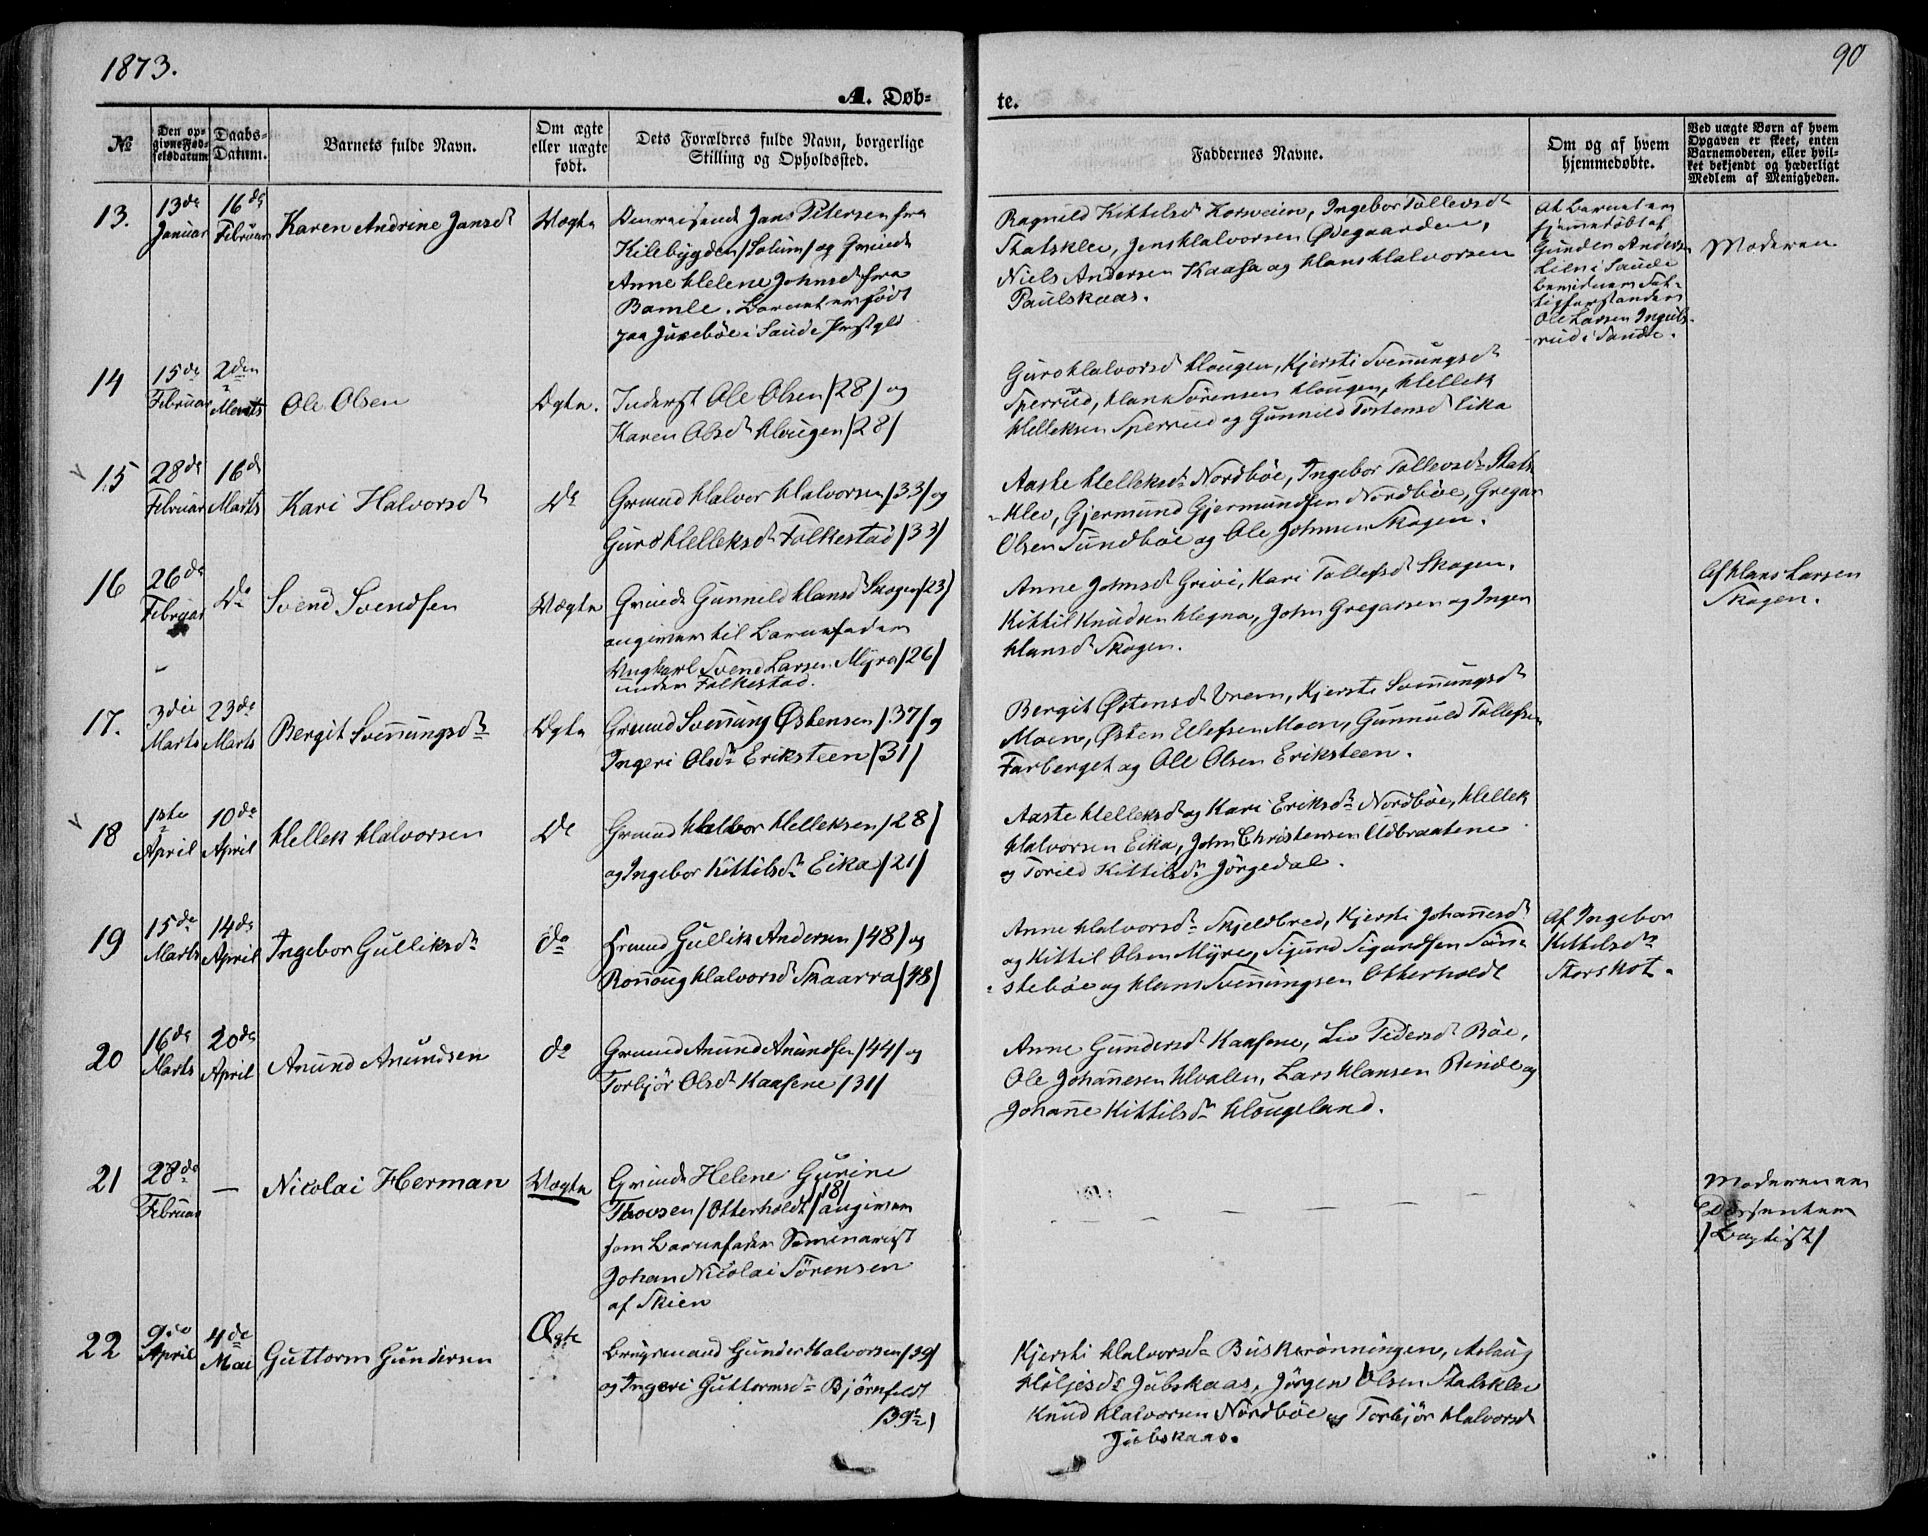 1873.
90
A. Døb-
te.
№
Den op-
givne Fød-
selsdatum
Daabs-
Datum.
Barnets fulde Navn.
Om ægte
eller uægte
født.
Dets Forældres fulde Navn, borgerlige
Stilling og Opholdssted.
Faddernes Navne.
Om og af hvem
hjemmedøbte.
Ved uægte Børn af hvem
Opgaven er skeet, enten
Barnemoderen, eller hvil-
ket bekjendt og hæderligt
Medlem af Menigheden.
13.
13de
Januar
16de
Februar
Karen Andrine Jansd
Uægte
Omreisende Jans Petersen fra
Kilebygden /Solum/ og Gpinde
Anne Helene Johnsd fra
Bamle. Barnet er født
paa Juveböe i Saude Prstgld
Ragnild Kittilsd Korsveien, Ingebor Tollevsd
Statsklev, Jens Halvorsen Ødegaarden,
Niels Andersen Kaasa og Hans Halvorsen
Paulskaas.
At Barnet er
hjemmedöbt af
Gunder Andersen
Lien i Saude
bevidner Fat-
tigforstander
Ole Larsen Ingulfs-
rud i Saude.
Moderen
14
15de
Februar
2den
Marts
Ole Olsen
Ægte.
Inderst Ole Olsen /28/ og
Karen Olsd Hougen /28/
Guro Halvorsd Hougen, Kjersti Svenungsd
Sperrud, Hans Sörensen Hougen, Hellek
Helleksen Sperrud og Gunnild Tostensd Eika
15
28de
Februar
16de
Marts
Kari Halvorsd
Do
Grmand Halvor Halvorsen /33/ og
Guro Helleksd Folkestad /33/
Aaste Helleksd Nordböe, Ingebor Tollevsd Stats-
klev, Gjermund Gjermundsen Nordböe, Gregar
Olsen Sundböe og Ole Johnsen Skogen.
16
26de
Februar
Do
Svend Svendsen
Uægte
Gpinde Gunnild Hansd Skogen /23/
angiver til Barnefader
Ungkarl Svend Larsen Myra /26/
under Folkestad.
Anne Johnsd Grivi, Kari Tollefsd Skogen,
Kittil Knudsen Hegna, John Gregarsen og Inger
Hansd Skogen.
Af Hans Larsen
Skogen.
17.
3die
Marts
23de
Marts
Bergit Svenungsd
Ægte
Grmand Svenung Østensen /37/ og
Ingeri Olsd Eriksteen /31/
Bergit Østensd Vrem, Kjersti Svenungsd
Moen, Østen Ellefsen Moen, Gunnuld Tollefsen
Farberget og Ole Olsen Eriksteen.
18
1ste
April
10de
April
Hellek Halvorsen
Do
Grmand Halvor Helleksen /28/
og Ingebor Kittilsd Eika /21/
Aaste Helleksd og Kari Eriksd Nordböe, Hellek
Halvorsen Eika, John Christensen Udbraatene
og Torild Kittilsd Jörgedal.
19
15de
Marts
14de
April
Ingebor Gulliksd
do
Grmand Gullik Andersen /48/ og
Ronnoug Halvorsd Skaarra /48/
Anne Halvorsd Skjeldbred, Kjersti Johannesd
og Kittil Olsen Myre, Sigurd Sigurdsen Töns-
steböe og Hans Svenungsen Otterholdt
Af Ingebor
Kittilsd
Storskot.
20
16de
Marts
20de
April
Anund Anundsen
do
Grmand Anund Anundsen /44/ og
Torbjör Olsd Kaasene /31/
Anne Gundersd Kaasene, Liv Pedersd Böe,
Ole Johannesen Hvalen, Lars Hansen Rinde og
Johanne Kittilsd Hougeland.
21
28de
Februar
—
Nicolai Herman
Uægte
Gpinde Helene Gurine
Thovsen /Otterholdt/ /18/ angiver
som Barnefader Seminarist
Johan Nicolai Sörensen
af Skien
— — — — —
Moderen er
Dissenter
/Baptist/
22
9de
April
4de
Mai
Guttorm Gundersen
Ægte
Brugsmand Gunder Halvorsen /39/
og Ingeri Guttormsd Björnfeldt
/39½/
Kjersti Halvorsd Buskrönningen, Aslaug
Höljesd Jubskaas, Jörgen Olsen Statsklev
Knud Halvorsen Nordböe og Torbjör Halvorsd
Jubskaas.